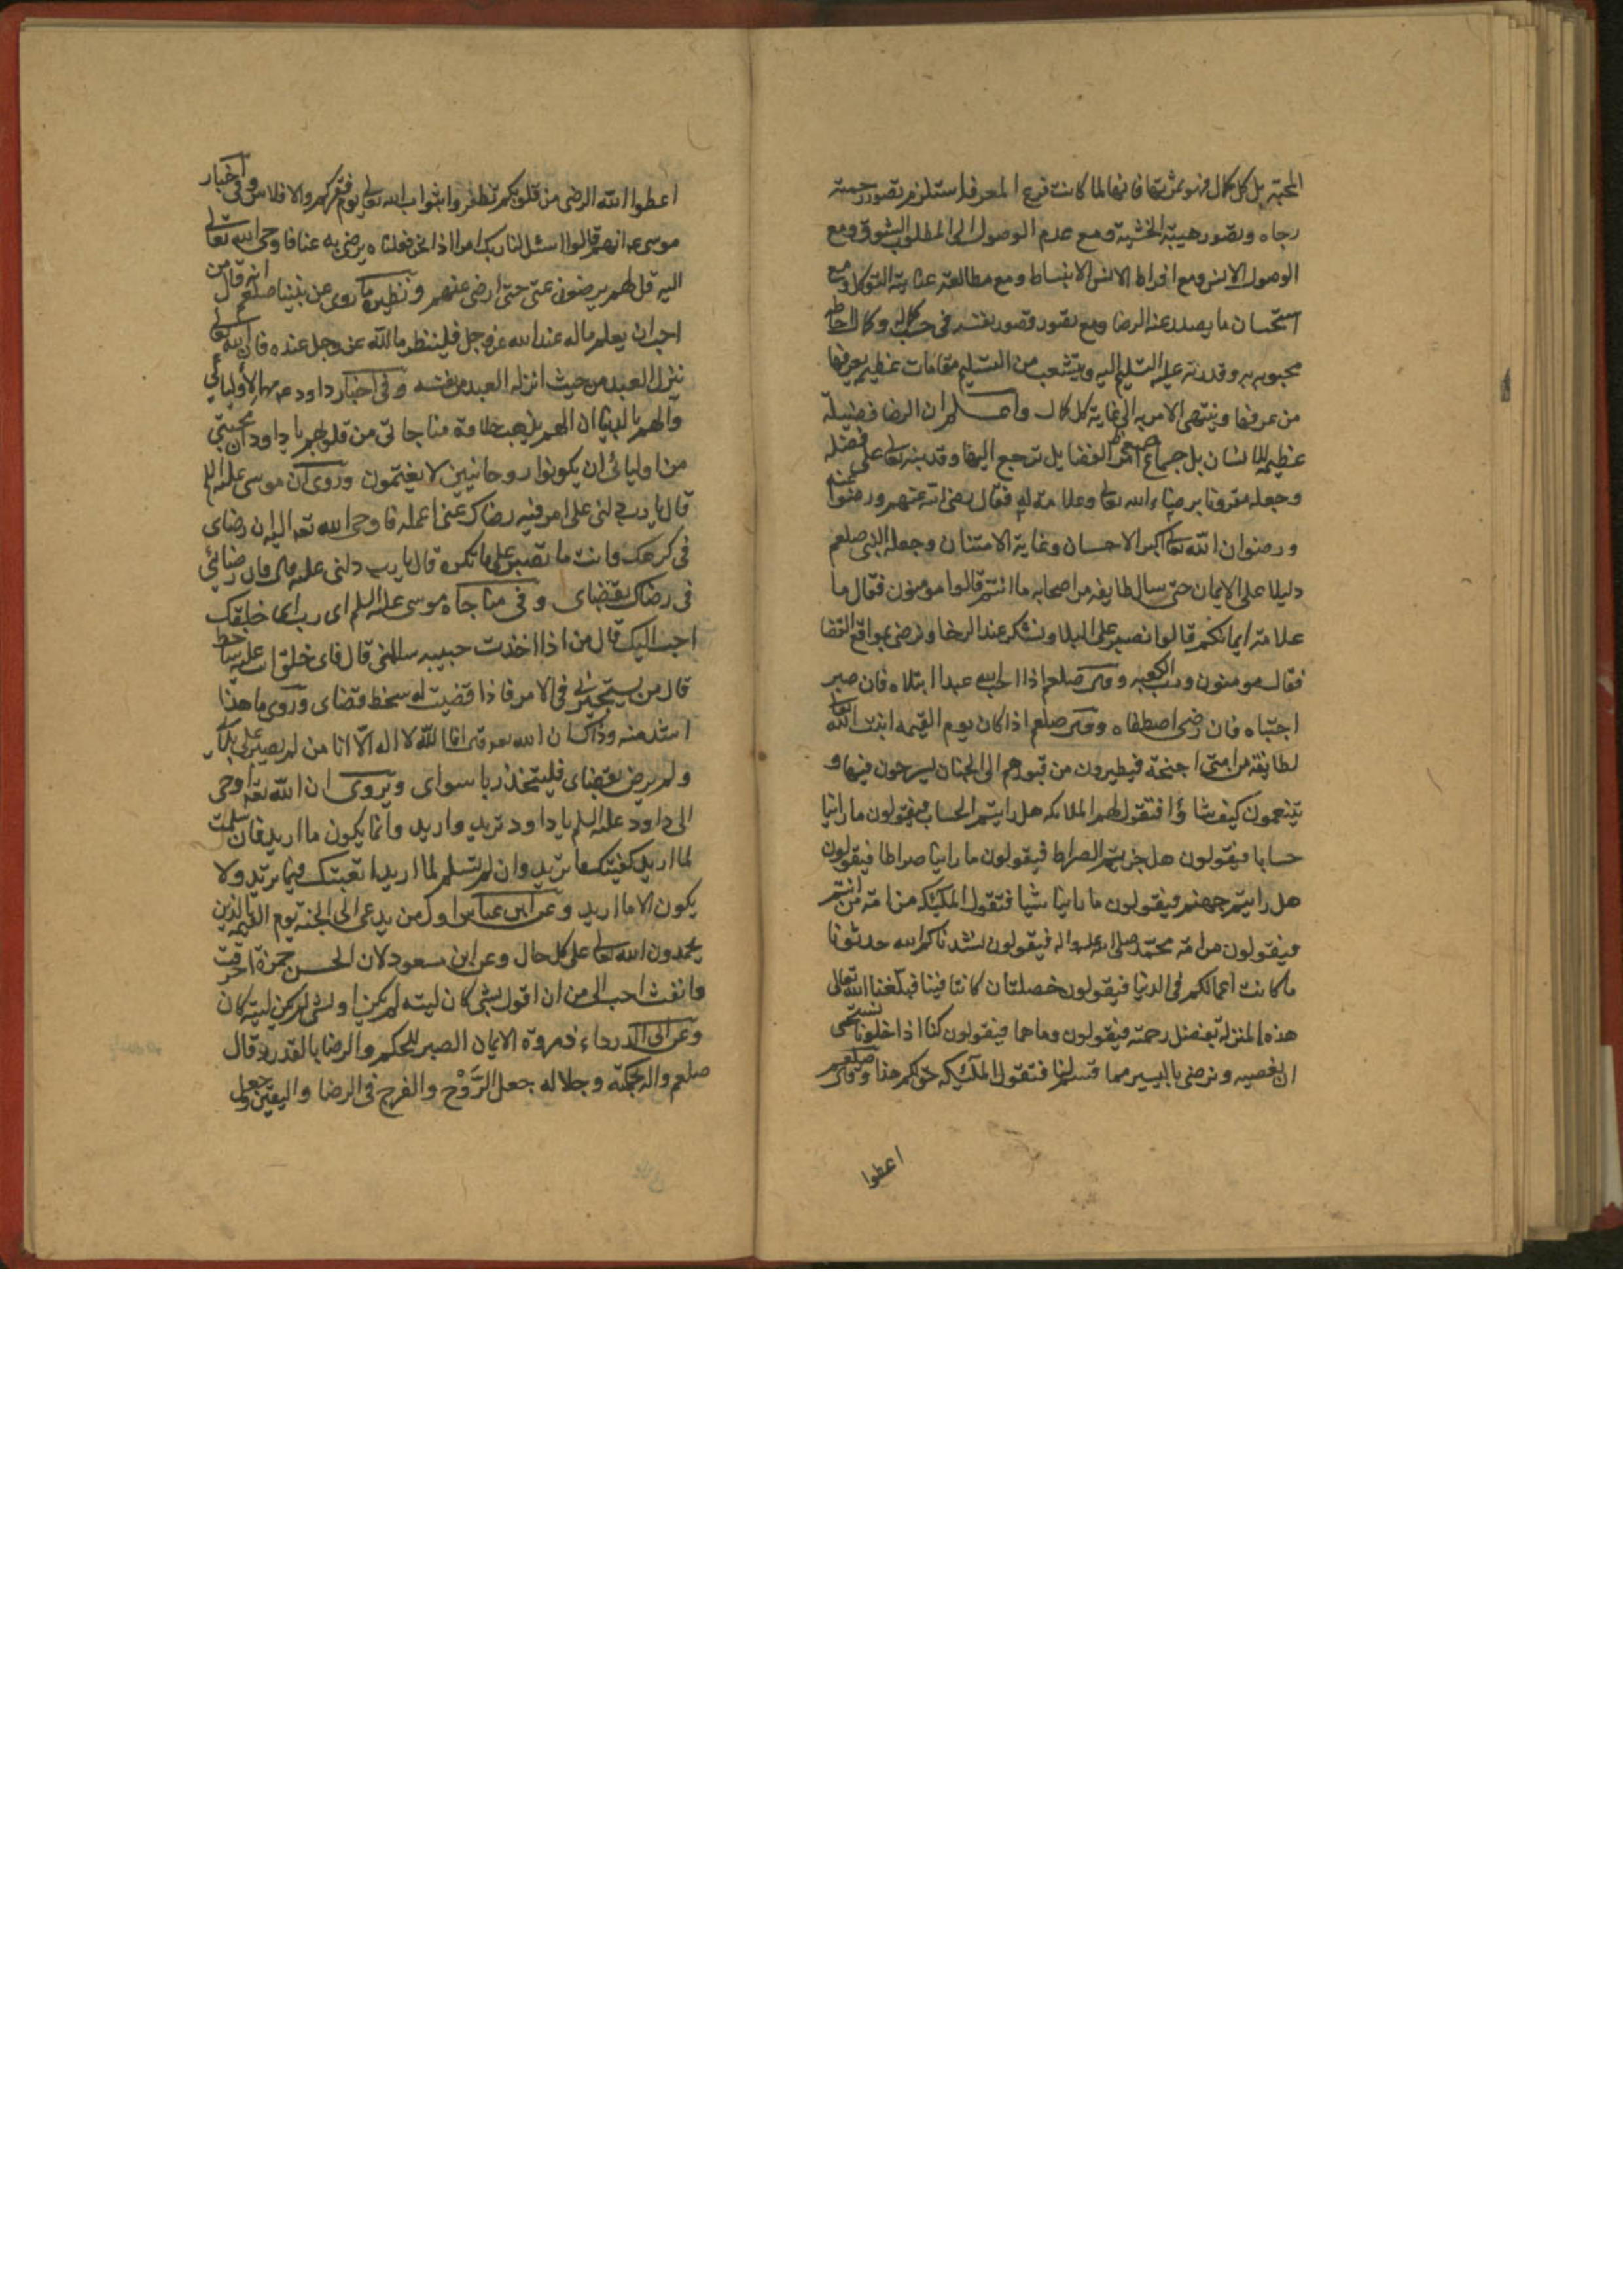 المحبة بل كل كمال فهو ثمرتها فانها لما كانت فرع المعرفة استلزم تصور رحمته
رجاه وتصور هيبته الخشية ومع عدم الوصول الى المطلوب الشوق ومع
الوصول الانس ومع افراط الانس الانبساط ومع مطالعة عنايته التوكل ومع
استحسان ما يصدر عنه الرضا ومع تصور قصور نفسه في جنب كماله وكمال احاطة
محبوبه به وقدرته عليه التسليم اليه ويتشعب من التسليم مقامات عظيمة يعرفها
من عرفها وينتهى الامر به الى غاية كل كمال واعلم ان الرضا فضيلة
عظيمة للانسان بل جماع امر الفضايل ترجع اليها وقد نبه تعالى على فضله
وجعله مقرونا برضاء الله تعالى وعلامة له فقال رضى الله عنهم ورضوا عنه
ورضوان الله تعالى اكبر الاحسان وغاية الامتنان وجعله النبى صلعم
دليلا على الايمان حتى سال طايفه من اصحابه ما انتم قالوا مومنون فقال ما
علامة ايمانكم قالوا نصبر على البلا ونشكر عند الرخا ونرضى بمواقع القضا
فقال مومنون ورب الكعبه وقال صلعم اذا احب الله عبدا ابتلاه فان صبر
اجتباه فان رضى اصطفاه وقال صلعم اذا كان يوم القيمه انبت الله تعالى
لطايفة من امتى اجنحة فيطيرون من قبورهم الى الجنان يسرحون فيها و
يتنعمون كيف شاؤا فتقول لهم الملائكه هل رايتم الحساب فيقولون ما راينا
حسابا فيقولون هل جزتم الصراط فيقولون ما راينا صراطا فيقولون
هل رايتم جهنم فيقولون ما راينا شيا فتقول الملئكه من امة من انتم
فيقولون من امة محمد صلى الله عليه واله فيقولون نشدناكم الله حدثونا
ما كانت اعمالكم فى الدنيا فيقولون خصلتان كانتا فينا فبلغنا الله تعالى
هذه المنزلة بفضل رحمته فيقولون وماهما فيقولون كنا اذا خلونا نستحى
ان نعصيه ونرضى باليسير مما قسم لنا فتقول الملئيكه حق لكم هذا وقال صلعم
اعطوا
اعطوا الله الرضى من قلوبكم تظفروا بثواب الله تعالى يوم فقركم والافلاس وفى اخبار
موسى عه انهم قالوا اسئل لنا ربك امرا اذا نحن فعلناه يرضى به عنا فاوحى الله تعالى
اليه قل لهم يرضون عنى حتى ارضى عنهم ونظيره ما روى عن نبينا صلعم انه قال من
احب ان يعلم ماله عند الله عز وجل فلينظر ما لله عز وجل عنده فان الله تعالى
ينزل العبد من حيث انزله العبد من نفسه وفى اخبار داود عه ما لاوليائى
والهم بالدنيا ان الهم يذهب حلاوة مناجاتى من قلوبهم يا داود ان محبتى
من اوليائى ان يكونوا روحانيين لا يغتمون وروى ان موسى عليه السلم
قال يا رب دلنى على امر فيه رضاك عنى اعمله فاوحى الله تعه اليه ان رضاى
فى كرهك وانت ما تصبر على ما تكره قال يا رب دلنى عليه قال فان رضائى
فى رضاك بقضاى وفى مناجاه موسى عليه السلم اى رب اى خلقك
احب اليك قال من اذا اخذت حبيبه سالمنى قال فاى خلق انت عليه ساخط
قال من يستخيرنى فى الامر فاذا قضيت له سخط قضاى وروى ما هذا
اشد منه وذلك ان الله تعه قال انا الله لا اله الا انا من لم يصبر على بلائى
ولم يرض بقضاى فليتخذ ربا سواى ويروى ان الله تعه اوحى
الى داود عليه السلم يا داود تريد واريد وانما يكون ما اريد فان سلمت
لما اريد كفيتك ما تريد وان لم تسلم لما اريد اتعبتك فيما تريد ولا
يكون الا ما اريد وعن ابن عباس اول من يدعى الى الجنه يوم القيمه الذين
يحمدون الله تعالى على كل حال وعن ابن مسعود لان الحس جمرة احرقت
ما ابقت احب الى من ان اقول لشى كان ليته لم يكن او لشى لم يكن ليته كان
وعن ابى الدرداء ذروة الايمان الصبر للحكم والرضا بالقدر وقال
صلعم وجلاله جعل الرَّوْح والفرج فى الرضا واليقين وجعل